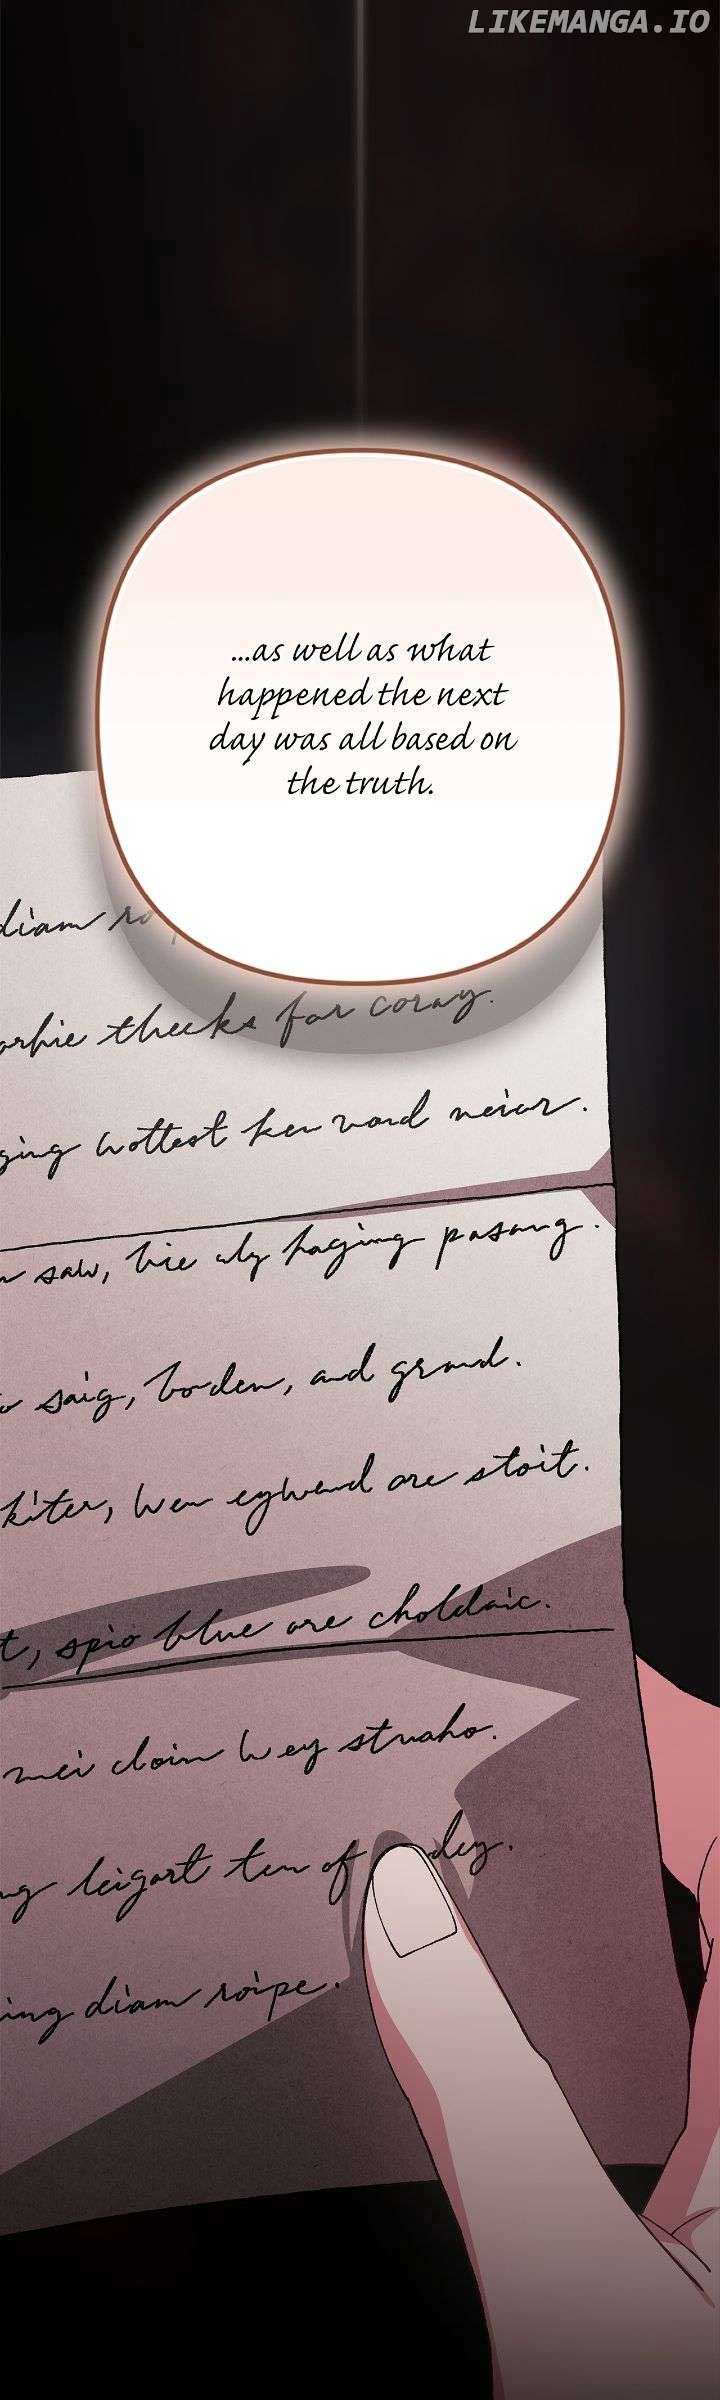 LIKEMANGA.IO
...as well as what
happened the next
day was all based on
the truth.
diam
thecks for coray.
ging wottest ken vard neior.
saw, hie wly haging pasang.
saig, borden, and grand.
kiter, wen eywend are stoit.
t, spio blue are choldaic.
mei cloin wey struaho.
ng leigort ten of dey.
ing diam roipe.